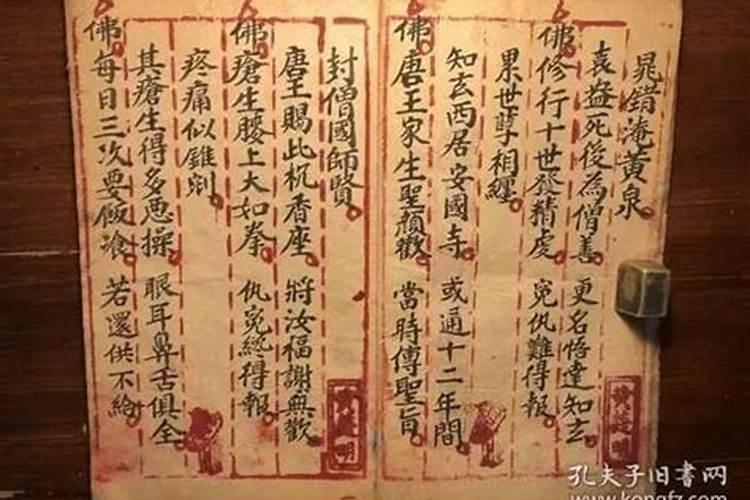 晁錯淹黃泉
袁盎死後為僧善 更名悟達知玄
佛修行十世發精虔 寃仇難得報
累世孽相纏
知玄西居安國寺 或通十二年間
佛唐王家生聖顏歡 當時傳聖旨
封僧國師賢
唐王賜此杌香座 將汝福謝無歡
佛瘡生腰上大如拳 仇寃終得報
疼痛似錐剜
其瘡生得多操 眼耳鼻舌俱全
佛每日三次要飯飡 若還供不給
孔夫子旧书网